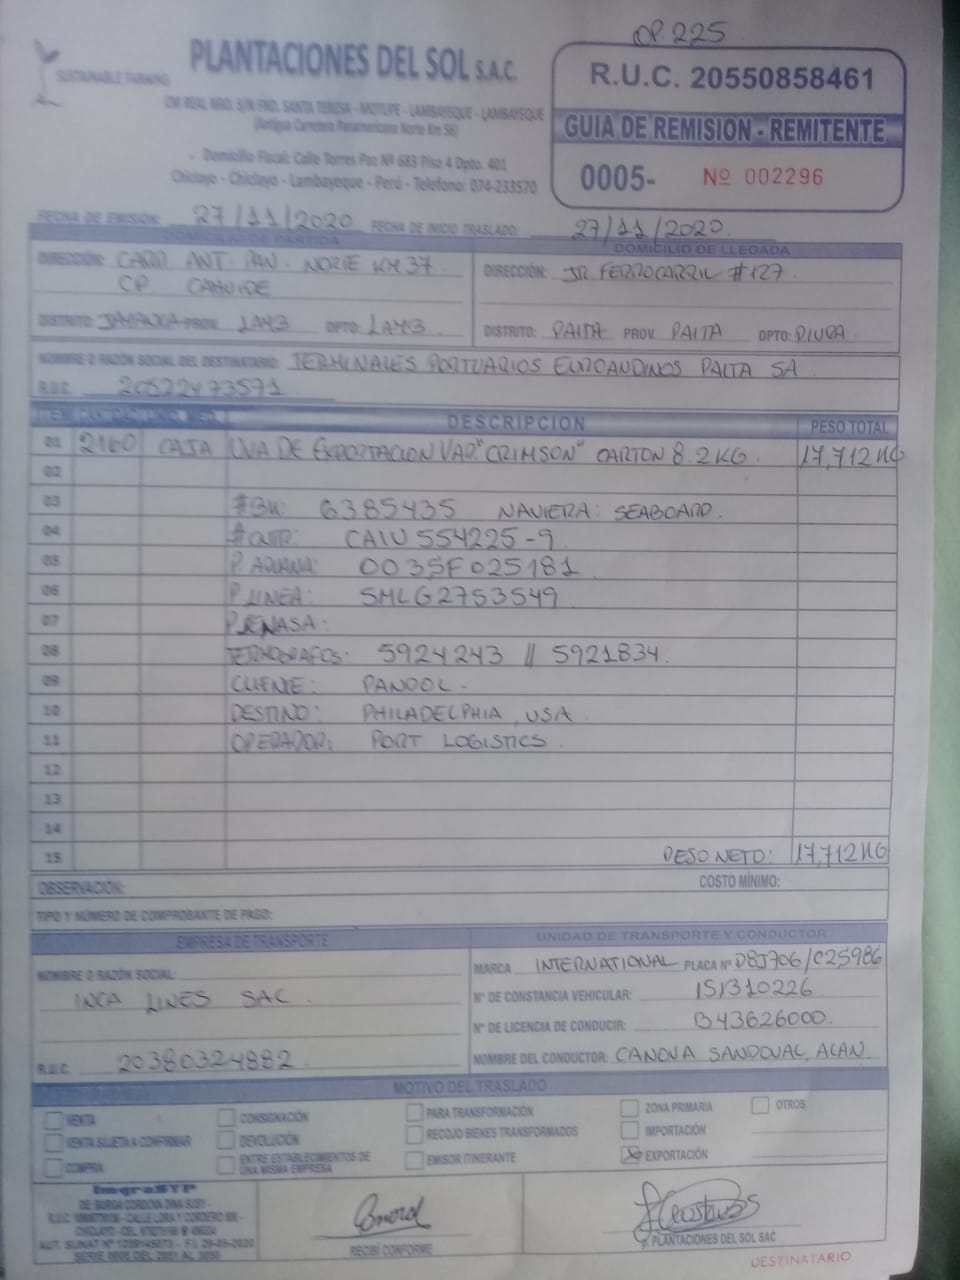 OP. 225
SUSTAINABLE FARMING
PLANTACIONES DEL SOL S.A.C.
R.U.C. 20550858461
CM REAL NRO. S/N FND. SANTA TERESA - MOTUPE - LAMBAYEQUE - LAMBAYEQUE
(Antigua Carretera Panamericana Norte Km 56)
GUIA DE REMISIÓN - REMITENTE
Domicilio Fiscal: Calle Torres Paz Nº 683 Piso 4 Dpto. 401
Chiclayo - Chiclayo - Lambayeque - Perú - Telefono: 074-233570
0005- Nº 002296
FECHA DE EMISIÓN: 27/11/2020 FECHA DE INICIO TRASLADO: 27/11/2020.
DOMICILIO DE PARTIDA DOMICILIO DE LLEGADA
DIRECCIÓN: CARR. ANT. PAN. NORTE KM 37. DIRECCIÓN: JR. FERROCARRIL #127.
CP CAHUIDE
DISTRITO: JAYANCA PROV. LAMB DPTO: LAMB. DISTRITO: PAITA PROV. PAITA DPTO: PIURA
NOMBRE O RAZÓN SOCIAL DEL DESTINATARIO: TERMINALES PORTUARIOS EUROANDINOS PAITA SA
R.U.C. 20522473571.
ITEM CANTIDAD UNID. MED. DESCRIPCION PESO TOTAL
01 2160 CAJA UVA DE EXPORTACION VAR "CRIMSON" CARTON 8.2 KG. 17,712 KG
02
03 #BK: 6385435 NAVIERA: SEABOARD.
04 #CNTR: CAIU 554225-9
05 P. ADUANA: 0035F025181
06 P. LINEA: SMLG2753549
07 P. SENASA:
08 TERMOGRAFOS: 5924243 // 5921834.
09 CLIENTE: PANDOL.
10 DESTINO: PHILADELPHIA, USA.
11 OPERADOR: PORT LOGISTICS.
12
13
14
15 PESO NETO: 17,712 KG
OBSERVACIÓN: COSTO MÍNIMO:
TIPO Y NÚMERO DE COMPROBANTE DE PAGO:
EMPRESA DE TRANSPORTE UNIDAD DE TRANSPORTE Y CONDUCTOR
NOMBRE O RAZÓN SOCIAL: MARCA INTERNATIONAL PLACA Nº D8J706/C2S986
INCA LINES SAC. Nº DE CONSTANCIA VEHICULAR: 151310226
Nº DE LICENCIA DE CONDUCIR: B43626000.
R.U.C. 20380324882 NOMBRE DEL CONDUCTOR: CANOVA SANDOVAL, ALAN.
MOTIVO DEL TRASLADO
VENTA CONSIGNACIÓN PARA TRANSFORMACIÓN ZONA PRIMARIA OTROS
VENTA SUJETA A CONFIRMAR DEVOLUCIÓN RECOJO BIENES TRANSFORMADOS IMPORTACIÓN
COMPRA ENTRE ESTABLECIMIENTOS DE UNA MISMA EMPRESA EMISOR ITINERANTE EXPORTACIÓN
DE: BURGA CORDOVA DINA SUSY
RECIBÍ CONFORME
P. PLANTACIONES DEL SOL SAC
DESTINATARIO